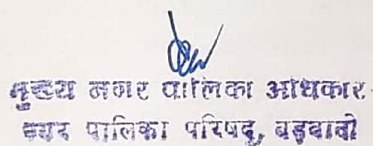 मुख्य नगर पालिका अधिकार
नगर पालिका परिषद्, बड़वानी